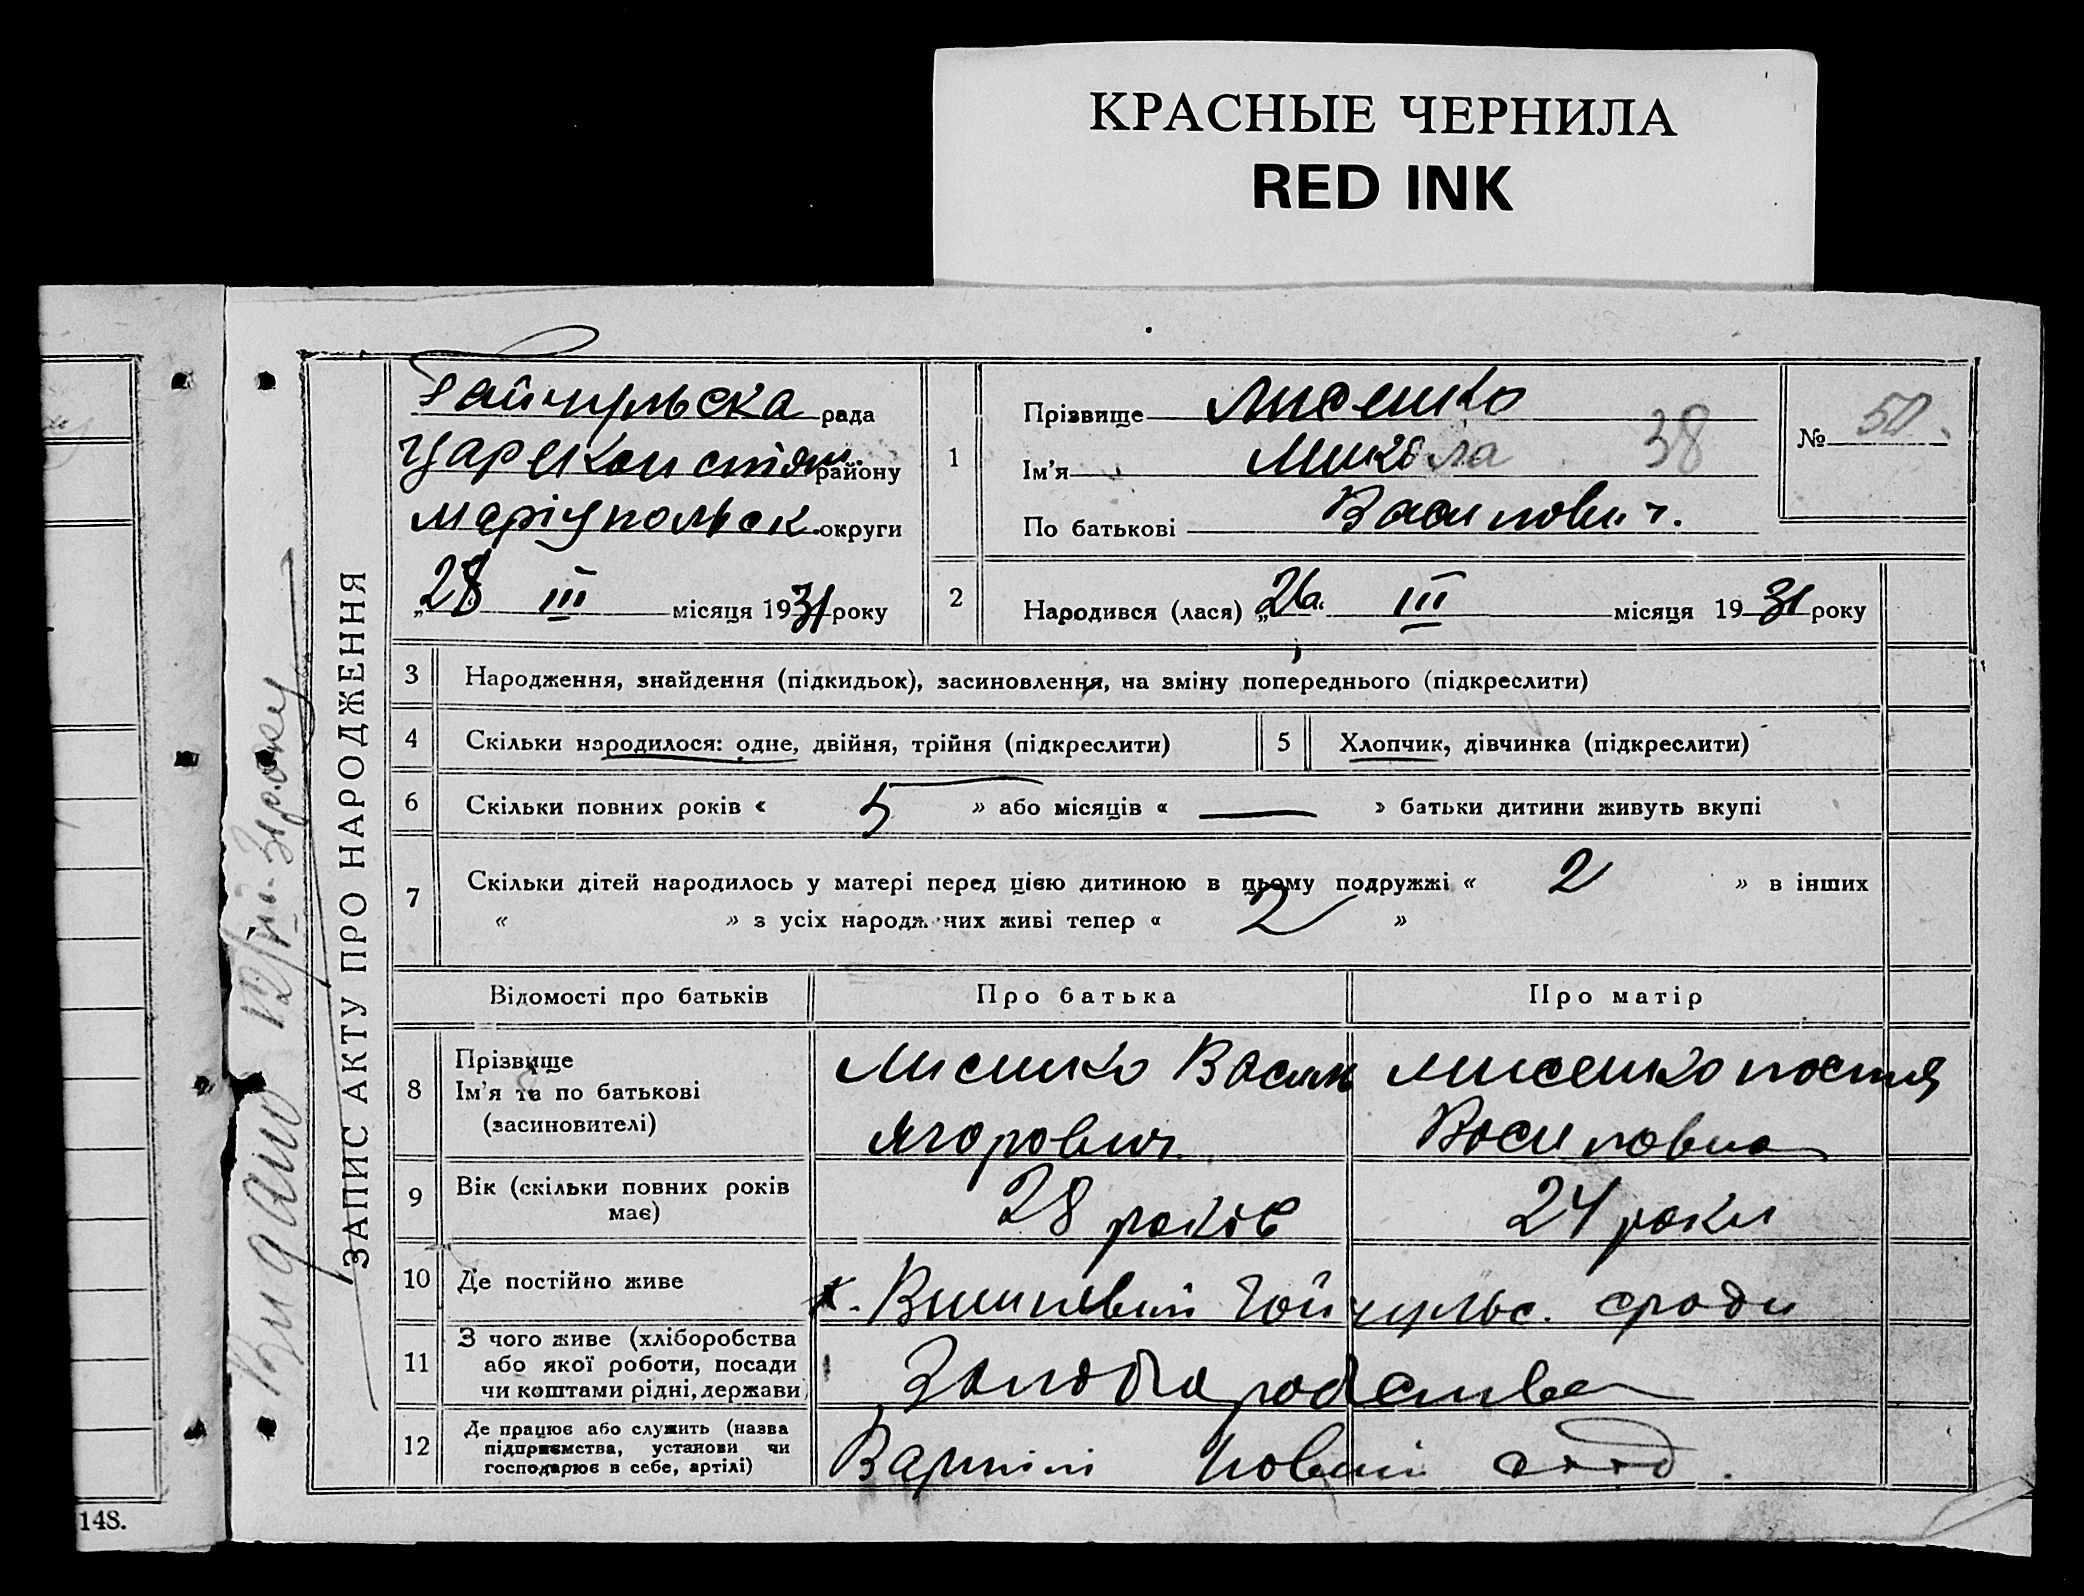 КРАСНЫЕ ЧЕРНИЛА
RED INK
148.
ЗАПИС АКТУ ПРО НАРОДЖЕННЯ
Видано 12/III-31 року
Гайчульска рада
Царекон району
Маріупольск. округи
„28 III місяця 1931 року
1
Прізвище Лисенко
Ім'я Микола 38
По батькові Васильович.
№ 50.
2
Народився (лася) „26. III місяця 1931 року
3 Народження, знайдення (підкидьок), засиновлення, на зміну попереднього (підкреслити)
4 Скільки народилося: одне, двійня, трійня (підкреслити) 5 Хлопчик, дівчинка (підкреслити)
6 Скільки повних років « 5 » або місяців « — » батьки дитини живуть вкупі
7 Скільки дітей народилось у матері перед цією дитиною в цьому подружжі « 2 » в інших
« » з усіх народж них живі тепер « 2 »
Відомості про батьків Про батька Про матір
8 Прізвище
Ім'я та по батькові
(засиновителі)
Лисенко Василь
Ягорович
Лисенко
Василовна
9 Вік (скільки повних років
має)
28 років 24 роки
10 Де постійно живе
х. Вишневий Гайчульс. сради
11 З чого живе (хліборобства
або якої роботи, посади
чи коштами рідні, держави)
12 Де працює або служить (назва
підприємства, установи чи
господарює в себе, артілі)
В артілі Новий